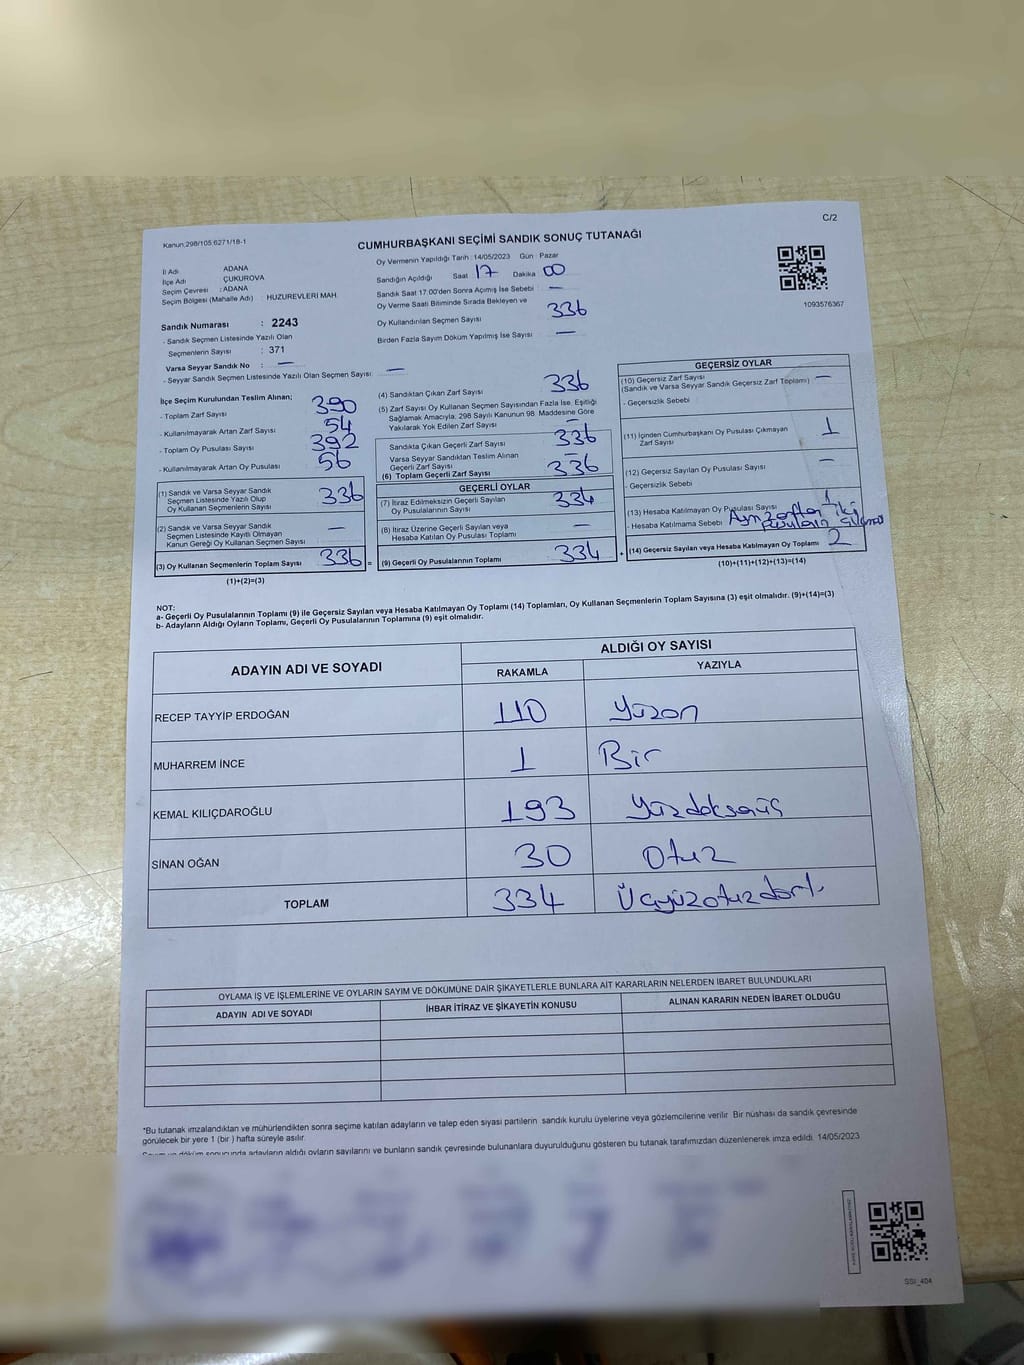 Kanun,298/105 6271/18-1
C/2
CUMHURBAŞKANI SEÇİMİ SANDIK SONUÇ TUTANAĞI
İl Adı ADANA
İlçe Adı ÇUKUROVA
Seçim Çevresi : ADANA
Seçim Bölgesi (Mahalle Adı) : HUZUREVLERİ MAH.
Sandık Numarası : 2243
- Sandık Seçmen Listesinde Yazılı Olan
Seçmenlerin Sayısı : 371
Varsa Seyyar Sandık No : —
- Seyyar Sandık Seçmen Listesinde Yazılı Olan Seçmen Sayısı: —
Oy Vermenin Yapıldığı Tarih : 14/05/2023 Gün : Pazar
Sandığın Açıldığı Saat 17 Dakika 00
Sandık Saat 17.00'den Sonra Açımış İse Sebebi : —
Oy Verme Saati Bitiminde Sırada Bekleyen ve
Oy Kullandırılan Seçmen Sayısı 336
Birden Fazla Sayım Döküm Yapılmış İse Sayısı : —
1093576367
İlçe Seçim Kurulundan Teslim Alınan;
- Toplam Zarf Sayısı 390
- Kullanılmayarak Artan Zarf Sayısı 54
- Toplam Oy Pusulası Sayısı 392
- Kullanılmayarak Artan Oy Pusulası 56
(1) Sandık ve Varsa Seyyar Sandık
Seçmen Listesinde Yazılı Olup
Oy Kullanan Seçmenlerin Sayısı 336
(2) Sandık ve Varsa Seyyar Sandık
Seçmen Listesinde Kayıtlı Olmayan
Kanun Gereği Oy Kullanan Seçmen Sayısı —
(3) Oy Kullanan Seçmenlerin Toplam Sayısı 336 =
(1)+(2)=(3)
(4) Sandıktan Çıkan Zarf Sayısı 336
(5) Zarf Sayısı Oy Kullanan Seçmen Sayısından Fazla İse, Eşitliği
Sağlamak Amacıyla, 298 Sayılı Kanunun 98. Maddesine Göre
Yakılarak Yok Edilen Zarf Sayısı —
Sandıkta Çıkan Geçerli Zarf Sayısı 336
Varsa Seyyar Sandıktan Teslim Alınan
Geçerli Zarf Sayısı —
(6) Toplam Geçerli Zarf Sayısı 336
GEÇERLİ OYLAR
(7) İtiraz Edilmeksizin Geçerli Sayılan
Oy Pusulalarının Sayısı 334
(8) İtiraz Üzerine Geçerli Sayılan veya
Hesaba Katılan Oy Pusulası Toplamı —
(9) Geçerli Oy Pusulalarının Toplamı 334 +
GEÇERSİZ OYLAR
(10) Geçersiz Zarf Sayısı —
(Sandık ve Varsa Seyyar Sandık Geçersiz Zarf Toplamı)
- Geçersizlik Sebebi
(11) İçinden Cumhurbaşkanı Oy Pusulası Çıkmayan
Zarf Sayısı 1
(12) Geçersiz Sayılan Oy Pusulası Sayısı —
- Geçersizlik Sebebi
(13) Hesaba Katılmayan Oy Pusulası Sayısı 1
- Hesaba Katılmama Sebebi Aynı zarftan iki
pusulanın
(14) Geçersiz Sayılan veya Hesaba Katılmayan Oy Toplamı 2
(10)+(11)+(12)+(13)=(14)
NOT:
a- Geçerli Oy Pusulalarının Toplamı (9) ile Geçersiz Sayılan veya Hesaba Katılmayan Oy Toplamı (14) Toplamları, Oy Kullanan Seçmenlerin Toplam Sayısına (3) eşit olmalıdır. (9)+(14)=(3)
b- Adayların Aldığı Oyların Toplamı, Geçerli Oy Pusulalarının Toplamına (9) eşit olmalıdır.
ADAYIN ADI VE SOYADI ALDIĞI OY SAYISI
RAKAMLA YAZIYLA
RECEP TAYYİP ERDOĞAN 110 Yüzon
MUHARREM İNCE 1 Bir
KEMAL KILIÇDAROĞLU 193 Yüzdoksanüç
SİNAN OĞAN 30 Otuz
TOPLAM 334 Üçyüzotuzdört
OYLAMA İŞ VE İŞLEMLERİNE VE OYLARIN SAYIM VE DÖKÜMÜNE DAİR ŞİKAYETLERLE BUNLARA AİT KARARLARIN NELERDEN İBARET BULUNDUKLARI
ADAYIN ADI VE SOYADI İHBAR İTİRAZ VE ŞİKAYETİN KONUSU ALINAN KARARIN NEDEN İBARET OLDUĞU
*Bu tutanak imzalandıktan ve mühürlendikten sonra seçime katılan adayların ve talep eden siyasi partilerin sandık kurulu üyelerine veya gözlemcilerine verilir. Bir nüshası da sandık çevresinde
görülecek bir yere 1 (bir ) hafta süreyle asılır.
Sayım ve döküm sonucunda adayların aldığı oyların sayılarını ve bunların sandık çevresinde bulunanlara duyurulduğunu gösteren bu tutanak tarafımızdan düzenlenerek imza edildi. 14/05/2023
SSI_404